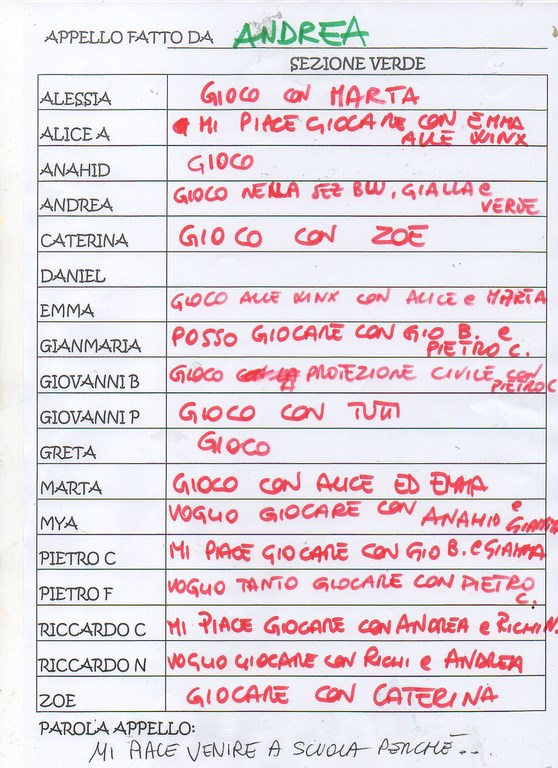 APPELLO FATTO DA ANDREA
SEZIONE VERDE
ALESSIA GIOCO CON MARTA
ALICE A MI PIACE GIOCARE CON EMMA
ALLE WINX
ANAHID GIOCO
ANDREA GIOCO NELLA SEZ BLU, GIALLA e
VERDE
CATERINA GIOCO CON ZOE
DANIEL
EMMA GIOCO ALLE WINX CON ALICE e MARTA
GIANMARIA POSSO GIOCARE CON GIO B. e
PIETRO C.
GIOVANNI B GIOCO A PROTEZIONE CIVILE CON
PIETRO C
GIOVANNI P GIOCO CON TUTTI
GRETA GIOCO
MARTA GIOCO CON ALICE ED EMMA
MYA VOGLIO GIOCARE CON ANAHID e
PIETRO C MI PIACE GIOCARE CON GIO B. e GIANMA
PIETRO F VOGLIO TANTO GIOCARE CON PIETRO
C.
RICCARDO C MI PIACE GIOCARE CON ANDREA e RICHI N.
RICCARDO N VOGLIO GIOCARE CON RICHI e ANDREA
ZOE GIOCARE CON CATERINA
PAROLA APPELLO:
MI PIACE VENIRE A SCUOLA PERCHÉ...